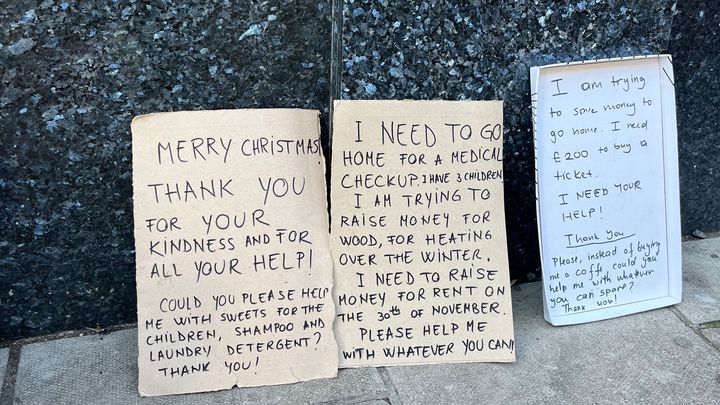 MERRY CHRISTMAS!
THANK YOU
FOR YOUR
KINDNESS AND FOR
ALL YOUR HELP!
COULD YOU PLEASE HELP
ME WITH SWEETS FOR THE
CHILDREN, SHAMPOO AND
LAUNDRY DETERGENT?
THANK YOU!
I NEED TO GO
HOME FOR A MEDICAL
CHECKUP. I HAVE 3 CHILDREN
I AM TRYING TO
RAISE MONEY FOR
WOOD, FOR HEATING
OVER THE WINTER.
I NEED TO RAISE
MONEY FOR RENT ON
THE 30th OF NOVEMBER.
PLEASE HELP ME
WITH WHATEVER YOU CAN!
I am trying
to save money to
go home. I need
£200 to buy a
ticket.
I NEED YOUR
HELP!
Thank you
Please, instead of buying
me a coffe, could you
help me with whatever
you can spare?
Thank you!